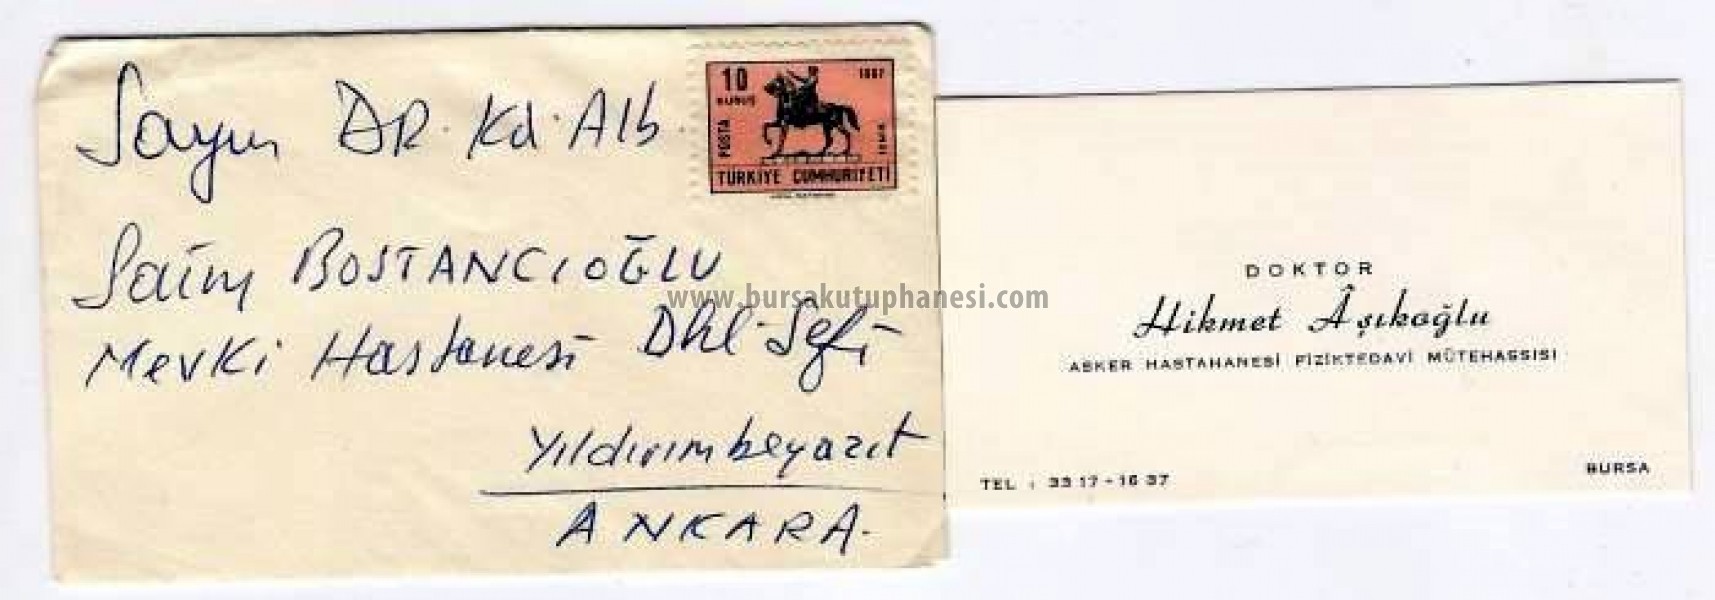 Sayın DR. Kd. Alb.
10
KURUŞ
1967
POSTA
İZMİR
TÜRKİYE CUMHURİYETİ
Saim BOSTANCIOĞLU
Mevki Hastanesi Dhl. Şefi
Yıldırımbeyazıt
ANKARA.
www.bursakutuphanesi.com
DOKTOR
Hikmet Âşıkoğlu
ASKER HASTAHANESİ FİZİKTEDAVİ MÜTEHASSISI
TEL : 33 17 - 16 37
BURSA